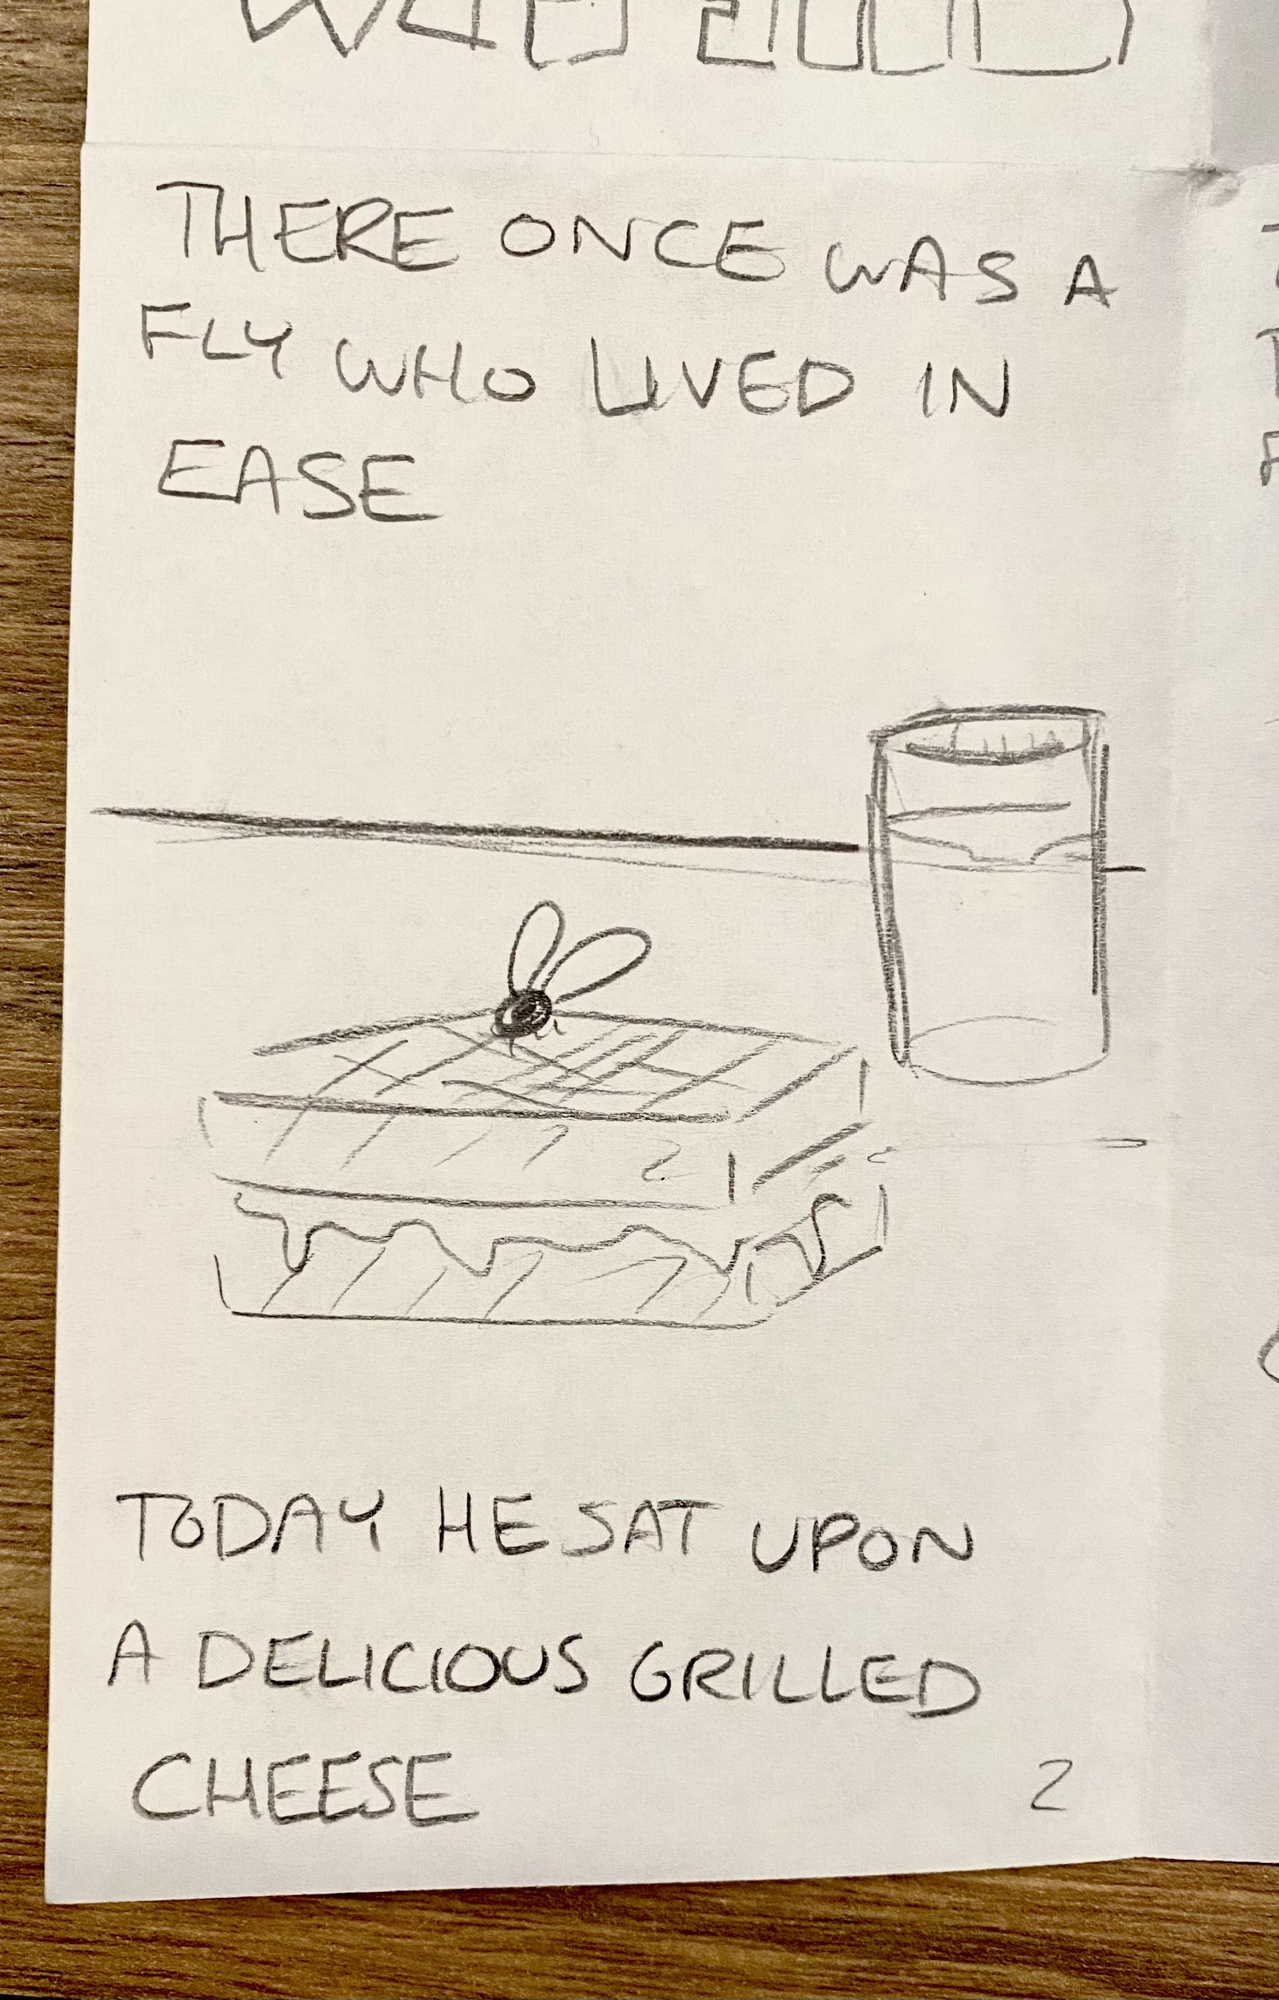 THERE ONCE WAS A
FLY WHO LIVED IN
EASE
TODAY HE SAT UPON
A DELICIOUS GRILLED
CHEESE
2